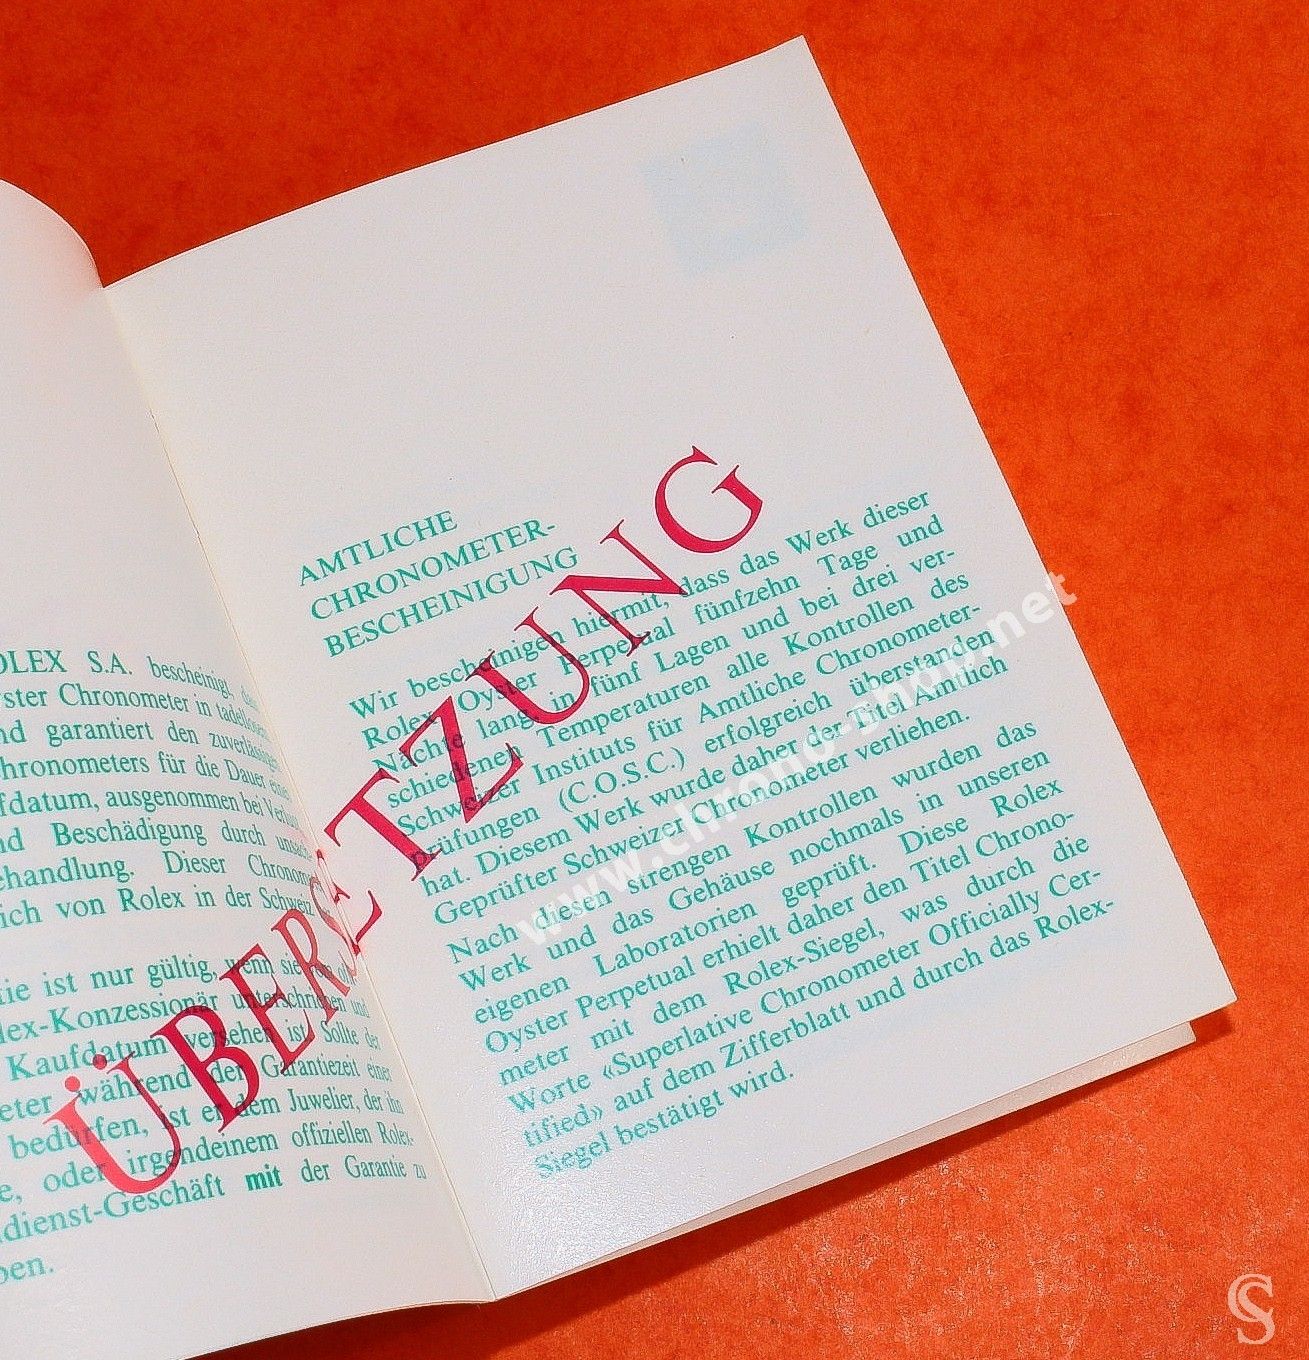 OLEX S.A. bescheinigt,
ster Chronometer in
nd garantiert den
hronometers für die Dauer
fdatum, ausgenommen bei
nd Beschädigung durch
ehandlung. Dieser
ich von Rolex in der Schweiz
ie ist nur gültig, wenn sie
lex-Konzessionär unterschrieben und
Kaufdatum versehen ist. Sollte der
eter während der Garantiezeit einer
bedürfen, ist er dem Juwelier, der ihn
e, oder irgendeinem offiziellen Rolex-
dienst-Geschäft mit der Garantie zu
ben.
ÜBERSETZUNG
AMTLICHE
CHRONOMETER-
BESCHEINIGUNG
Wir bescheinigen hiermit, dass das Werk dieser
Rolex Oyster Perpetual fünfzehn Tage und
Nächte lang, in fünf Lagen und bei drei ver-
schiedenen Temperaturen alle Kontrollen des
Schweizer Instituts für Amtliche Chronometer-
prüfungen (C.O.S.C.) erfolgreich überstanden
hat. Diesem Werk wurde daher der Titel Amtlich
Geprüfter Schweizer Chronometer verliehen.
Nach diesen strengen Kontrollen wurden das
Werk und das Gehäuse nochmals in unseren
eigenen Laboratorien geprüft. Diese Rolex
Oyster Perpetual erhielt daher den Titel Chrono-
meter mit dem Rolex-Siegel, was durch die
Worte «Superlative Chronometer Officially Cer-
tified» auf dem Zifferblatt und durch das Rolex-
Siegel bestätigt wird.
www.chrono-shop.net